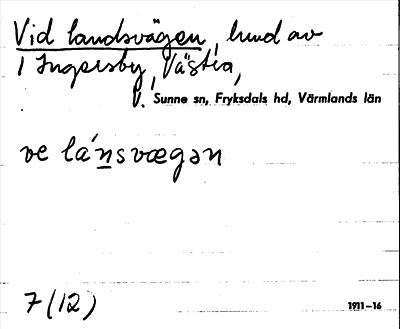 Vid landsvägen, lund av
1 Ingersby, Västra,
V. Sunne sn, Fryksdals hd, Värmlands län
ve lánsvægən
7 (12)
1911–16